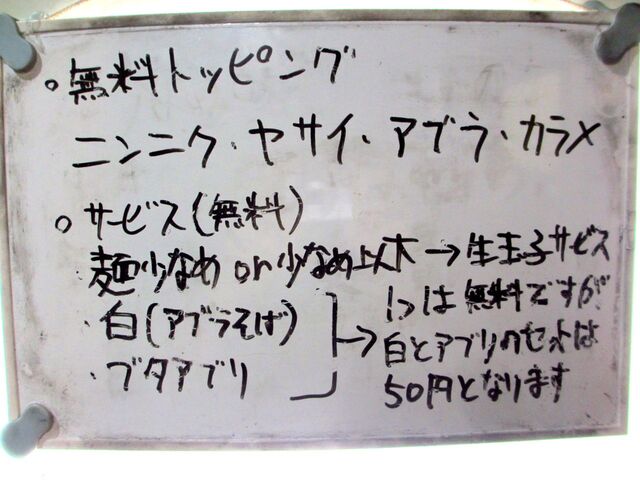 。無料トッピング
ニンニク・ヤサイ・アブラ・カラメ
。サービス(無料)
麺少なめ or 少なめ以下 → 生玉子サービス
・白(アブラそば)
・ブタアブリ
→ 1つは無料ですが
白とアブリのセットは
50円となります